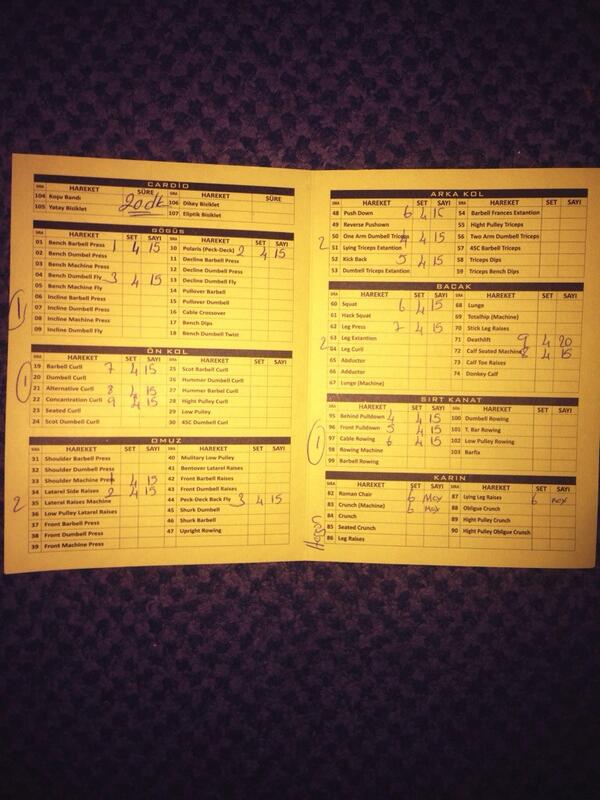 CARDİO
SIRA HAREKET SÜRE SIRA HAREKET SÜRE
104 Koşu Bandı 20dk 106 Dikey Bisiklet
105 Yatay Bisiklet 107 Eliptik Bisiklet
GÖĞÜS
SIRA HAREKET SET SAYI SIRA HAREKET SET SAYI
01 Bench Barbell Press 1 4 15 10 Polaris (Peck-Deck) 2 4 15
02 Bench Dumbel Press 11 Decline Barbell Press
03 Bench Machine Press 12 Decline Dumbell Press
04 Bench Dumbell Fly 3 4 15 13 Decline Dumbell Fly
05 Bench Machine Fly 14 Pullover Barbell
1
06 Incline Barbell Press 15 Pullover Dumbell
07 Incline Dumbell Press 16 Cable Crossover
08 Incline Machine Press 17 Bench Dips
09 Incline Dumbell Fly 18 Bench Dumbell Twist
ÖN KOL
SIRA HAREKET SET SAYI SIRA HAREKET SET SAYI
19 Barbell Curll 7 4 15 25 Scot Barbell Curll
1
20 Dumbell Curll 26 Hummer Dumbell Curll
21 Alternative Curll 8 4 15 27 Hummer Barbel Curll
22 Concantration Curll 9 4 15 28 Hight Pulley Curll
23 Seated Curll 29 Low Pulley
24 Scot Dumbell Curll 30 45C Dumbell Curll
OMUZ
SIRA HAREKET SET SAYI SIRA HAREKET SET SAYI
31 Shoulder Barbell Press 40 Mulitary Low Pulley
32 Shoulder Dumbell Press 41 Bentover Latarel Raises
33 Shoulder Machine Press 1 4 15 42 Front Barbell Raises
34 Latarel Side Raises 2 4 15 43 Front Dumbell Raises
2
35 Lateral Raises Machine 44 Peck-Deck Back Fly 3 4 15
36 Low Pulley Latarel Raises 45 Shurk Dumbell
37 Front Barbell Press 46 Shurk Barbell
38 Front Dumbell Press 47 Upright Rowing
39 Front Machine Press
ARKA KOL
SIRA HAREKET SET SAYI SIRA HAREKET SET SAYI
48 Push Down 6 4 15 54 Barbell Frances Extantion
49 Reverse Pushown 55 Hight Pulley Triceps
50 One Arm Dumbell Triceps 4 4 15 56 Two Arm Dumbell Triceps
2
51 Lying Triceps Extantion 57 45C Barbell Triceps
52 Kick Back 5 4 15 58 Triceps Dips
53 Dumbell Triceps Extantion 59 Triceps Bench Dips
BACAK
SIRA HAREKET SET SAYI SIRA HAREKET SET SAYI
60 Squat 6 4 15 68 Lunge
61 Hack Squat 69 Totalhip (Machine)
62 Leg Press 7 4 15 70 Stick Leg Raises
2
63 Leg Extantion 71 Deathlift 9 4 20
64 Leg Curll 72 Calf Seated Machine 8 4 15
65 Abductor 73 Calf Toe Raises
66 Adductor 74 Donkey Calf
67 Lunge (Machine)
SIRT KANAT
SIRA HAREKET SET SAYI SIRA HAREKET SET SAYI
95 Behind Pulldown 4 4 15 100 Dumbell Rowing
96 Front Pulldown 5 4 15 101 T. Bar Rowing
1
97 Cable Rowing 6 4 15 102 Low Pulley Rowing
98 Rowing Machine 103 Barfix
99 Barbell Rowing
KARIN
SIRA HAREKET SET SAYI SIRA HAREKET SET SAYI
82 Roman Chair 6 Max 87 Lying Leg Raises 6 max
83 Crunch (Machine) 6 Max 88 Obligue Crunch
84 Crunch 89 Hight Pulley Crunch
85 Seated Crunch 90 Hight Pulley Oblique Crunch
86 Leg Raises